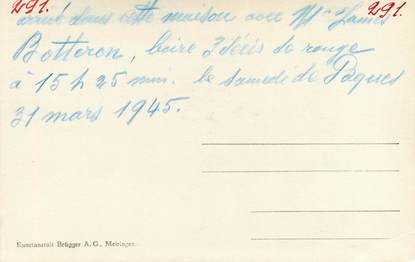 291.
291.
dans cette maison avec Mr James
Botteron, boire 3 décis de rouge
à 15 h 25 mm. le samedi de Pâques
31 mars 1945.
Kunstanstalt Brügger A. G., Meiringen